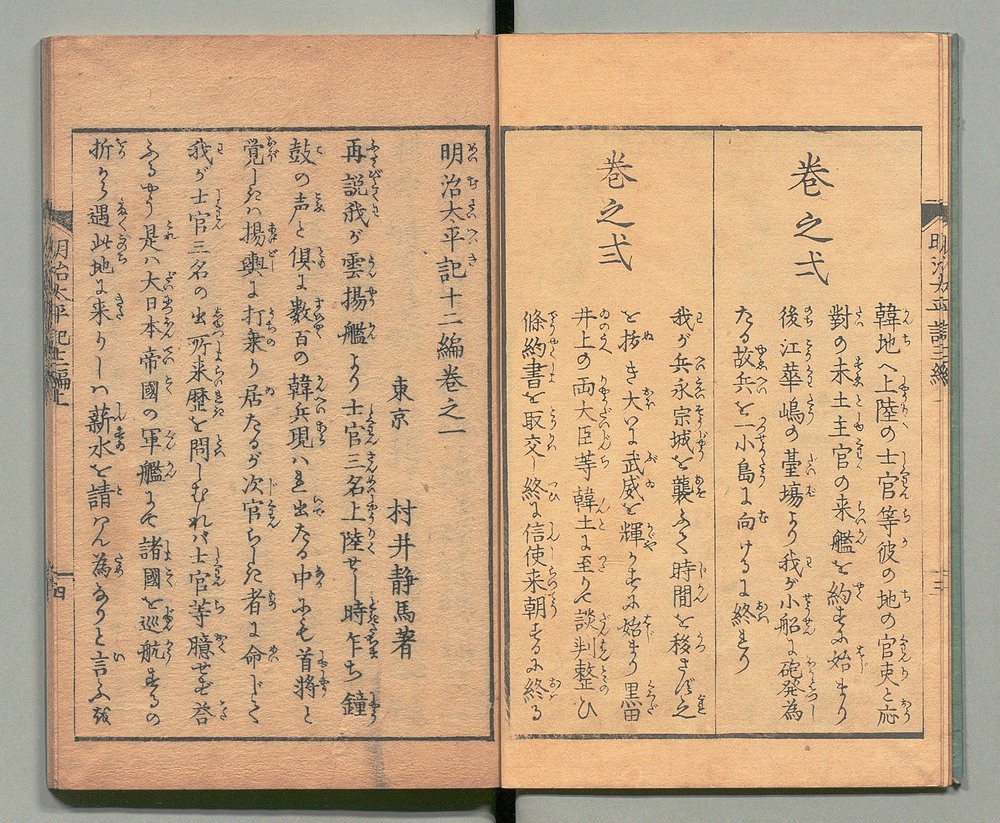 卷之弌
韓地へ上陸の士官等彼の地の官吏と応
對の末土主官の来艦を約するに始まり
後江華嶋の臺場より我が小船に砲発為
たる故兵を一小島に向けるに終まり
卷之弍
我が兵永宗城を襲ふて時間を移さず之
を抜き大いに武威を輝かすに始まり黒田
井上の両大臣等韓土に至りて談判整ひ
條約書を取交し終に信使来朝するに終る
明治太平記十二編巻之一
東京 村井静馬著
再説我が雲揚艦より士官三名上陸せし時乍ち鐘
鼓の声と倶に數百の韓兵現ハれ出たる中にも首將と
覚しきハ揚輿に打乗り居たるが次官らしき者に命じて
我が士官三名の出所来歴を問しむれバ士官等臆せず答
ふるやう是ハ大日本帝國の軍艦にて諸國を巡航するの
折から遇此地に来りしハ薪水を請ハん為なりと言ふ故
明治太平記十二編上
四